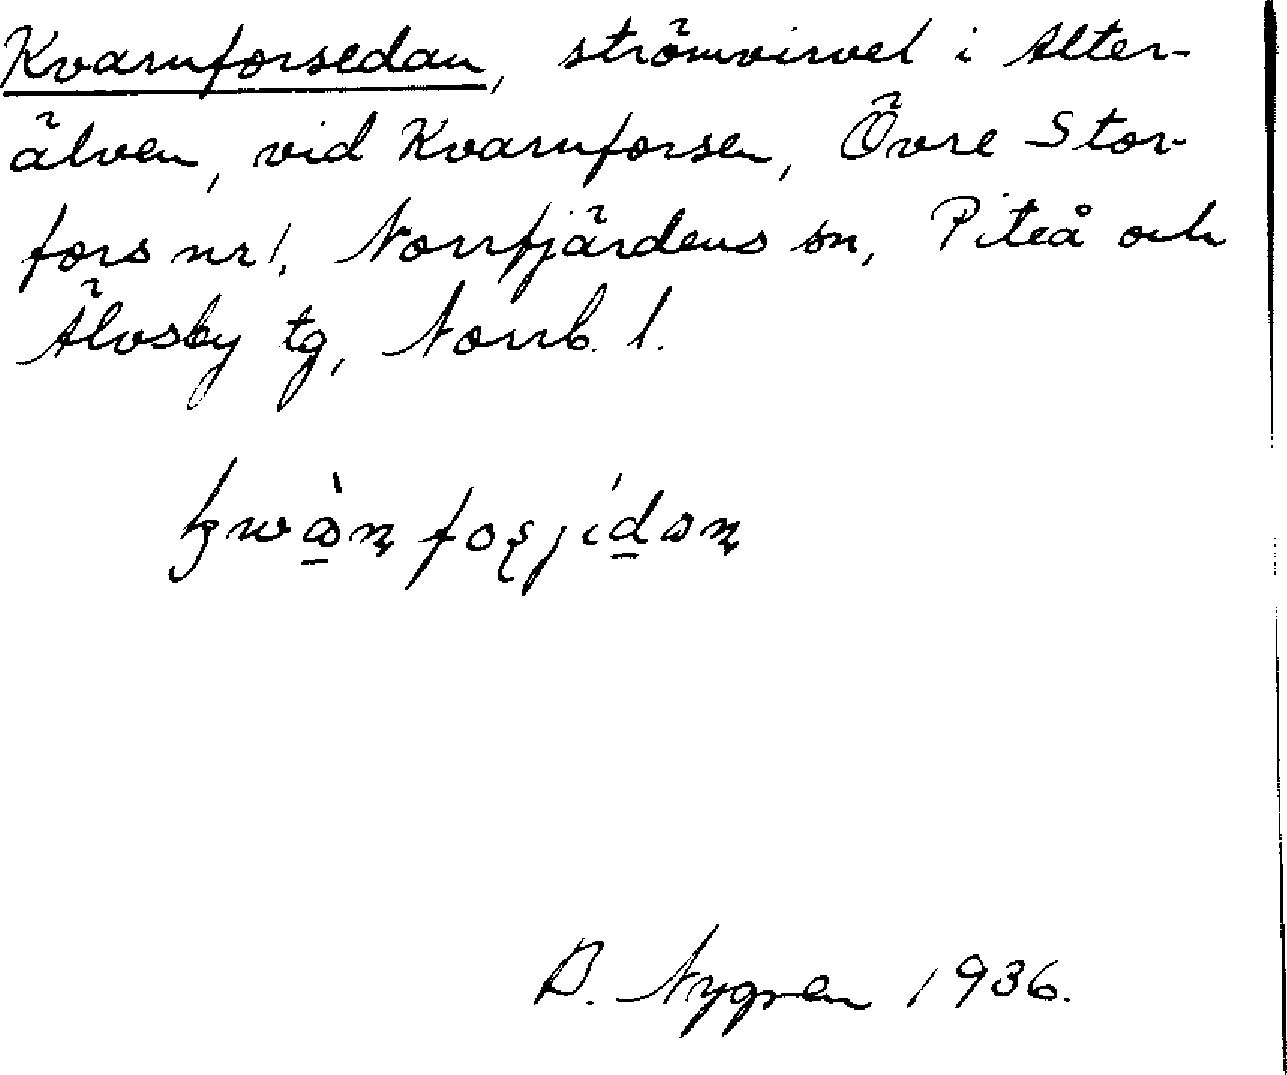 Kvarnforsedan, strömvirvel i Alter-
älven, vid Kvarnforsen, Övre Stor-
fors nr 1, Norrfjärdens sn, Piteå och
Älvsby tg, Norrb. l.
B. Nygren 1936.